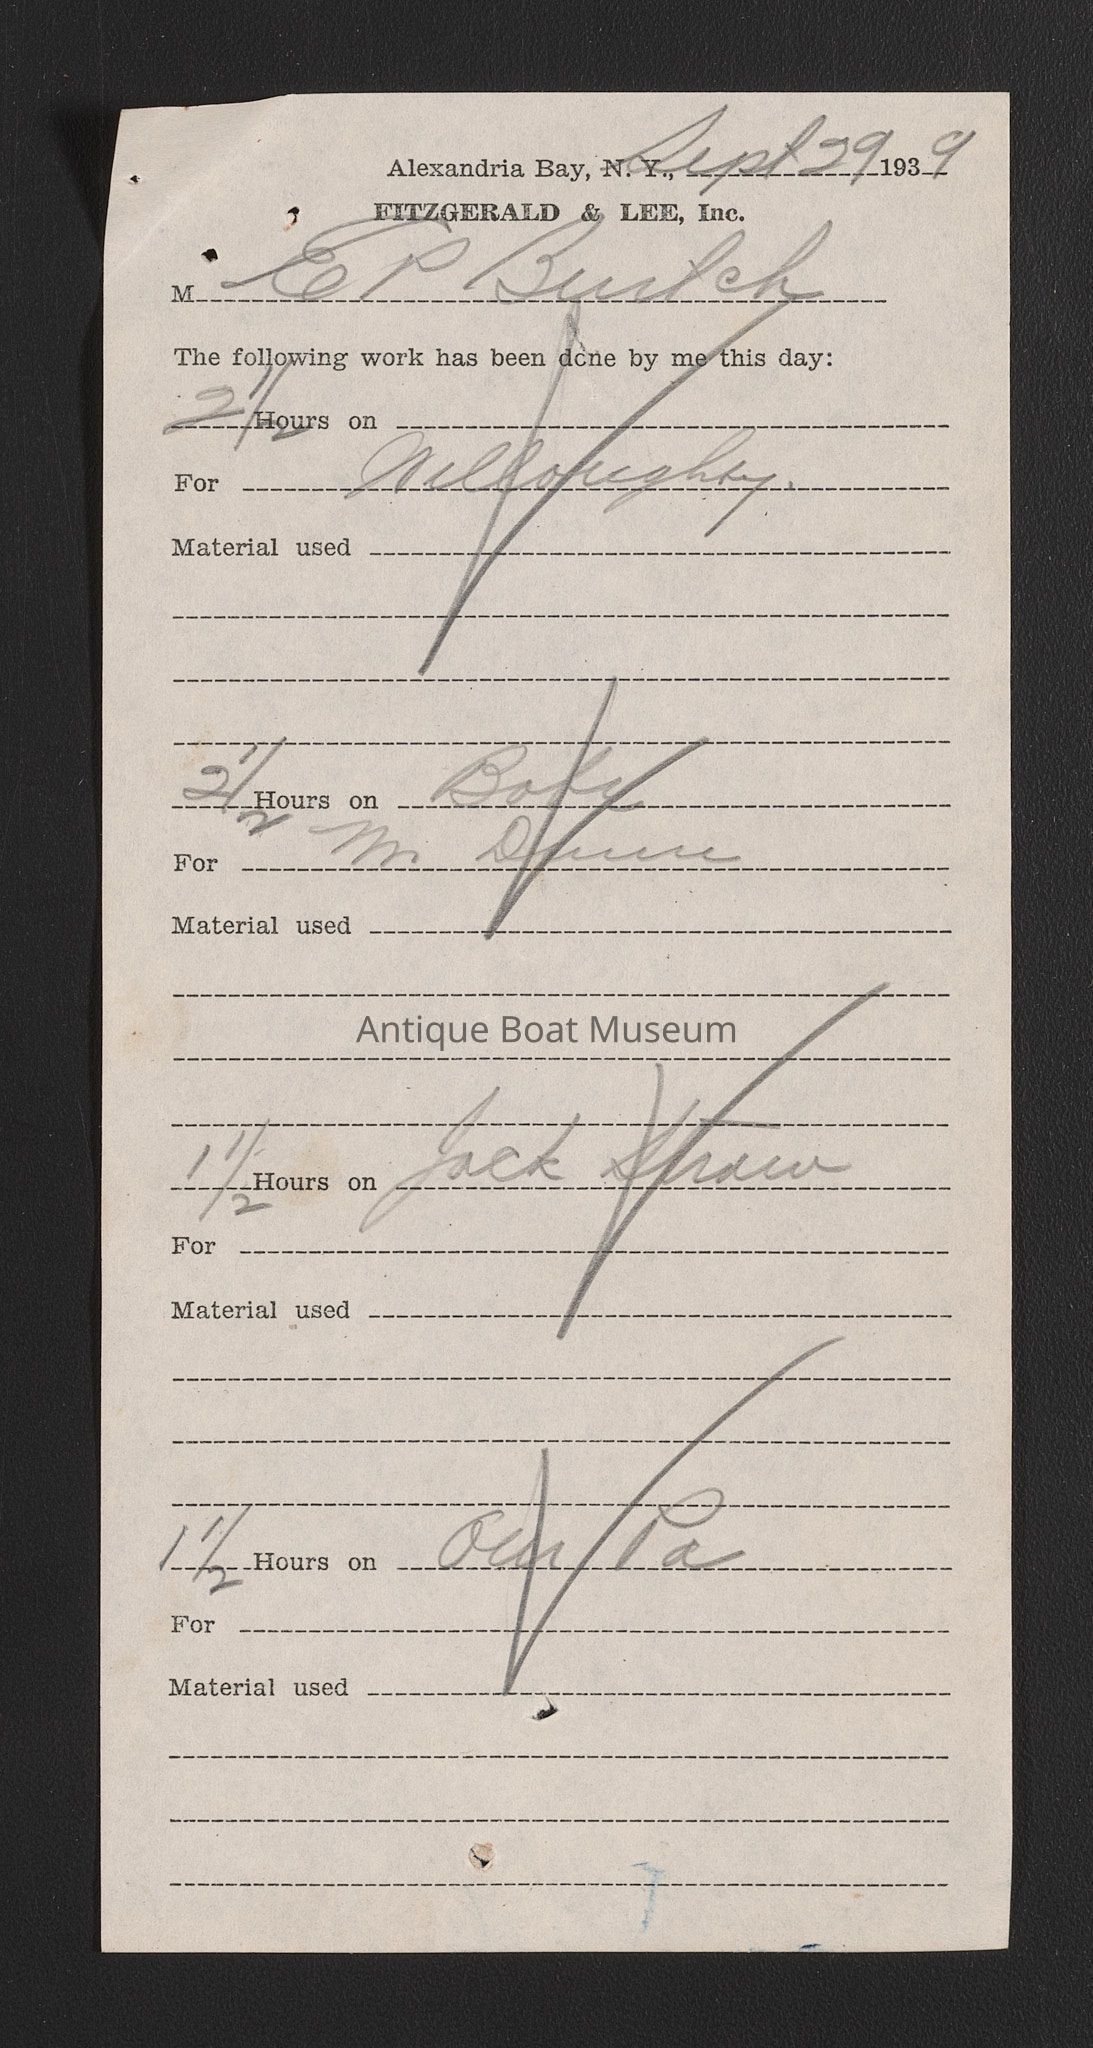 Alexandria Bay, N. Y., Sept 29 1939
FITZGERALD & LEE, Inc.
M E P Burtch
The following work has been done by me this day:
2 1/2 Hours on
For Willoughby.
Material used
2 1/2 Hours on Body
For Mr Dunn
Material used
Antique Boat Museum
1 1/2 Hours on Jack Straw
For
Material used
1 1/2 Hours on Our Pa
For
Material used